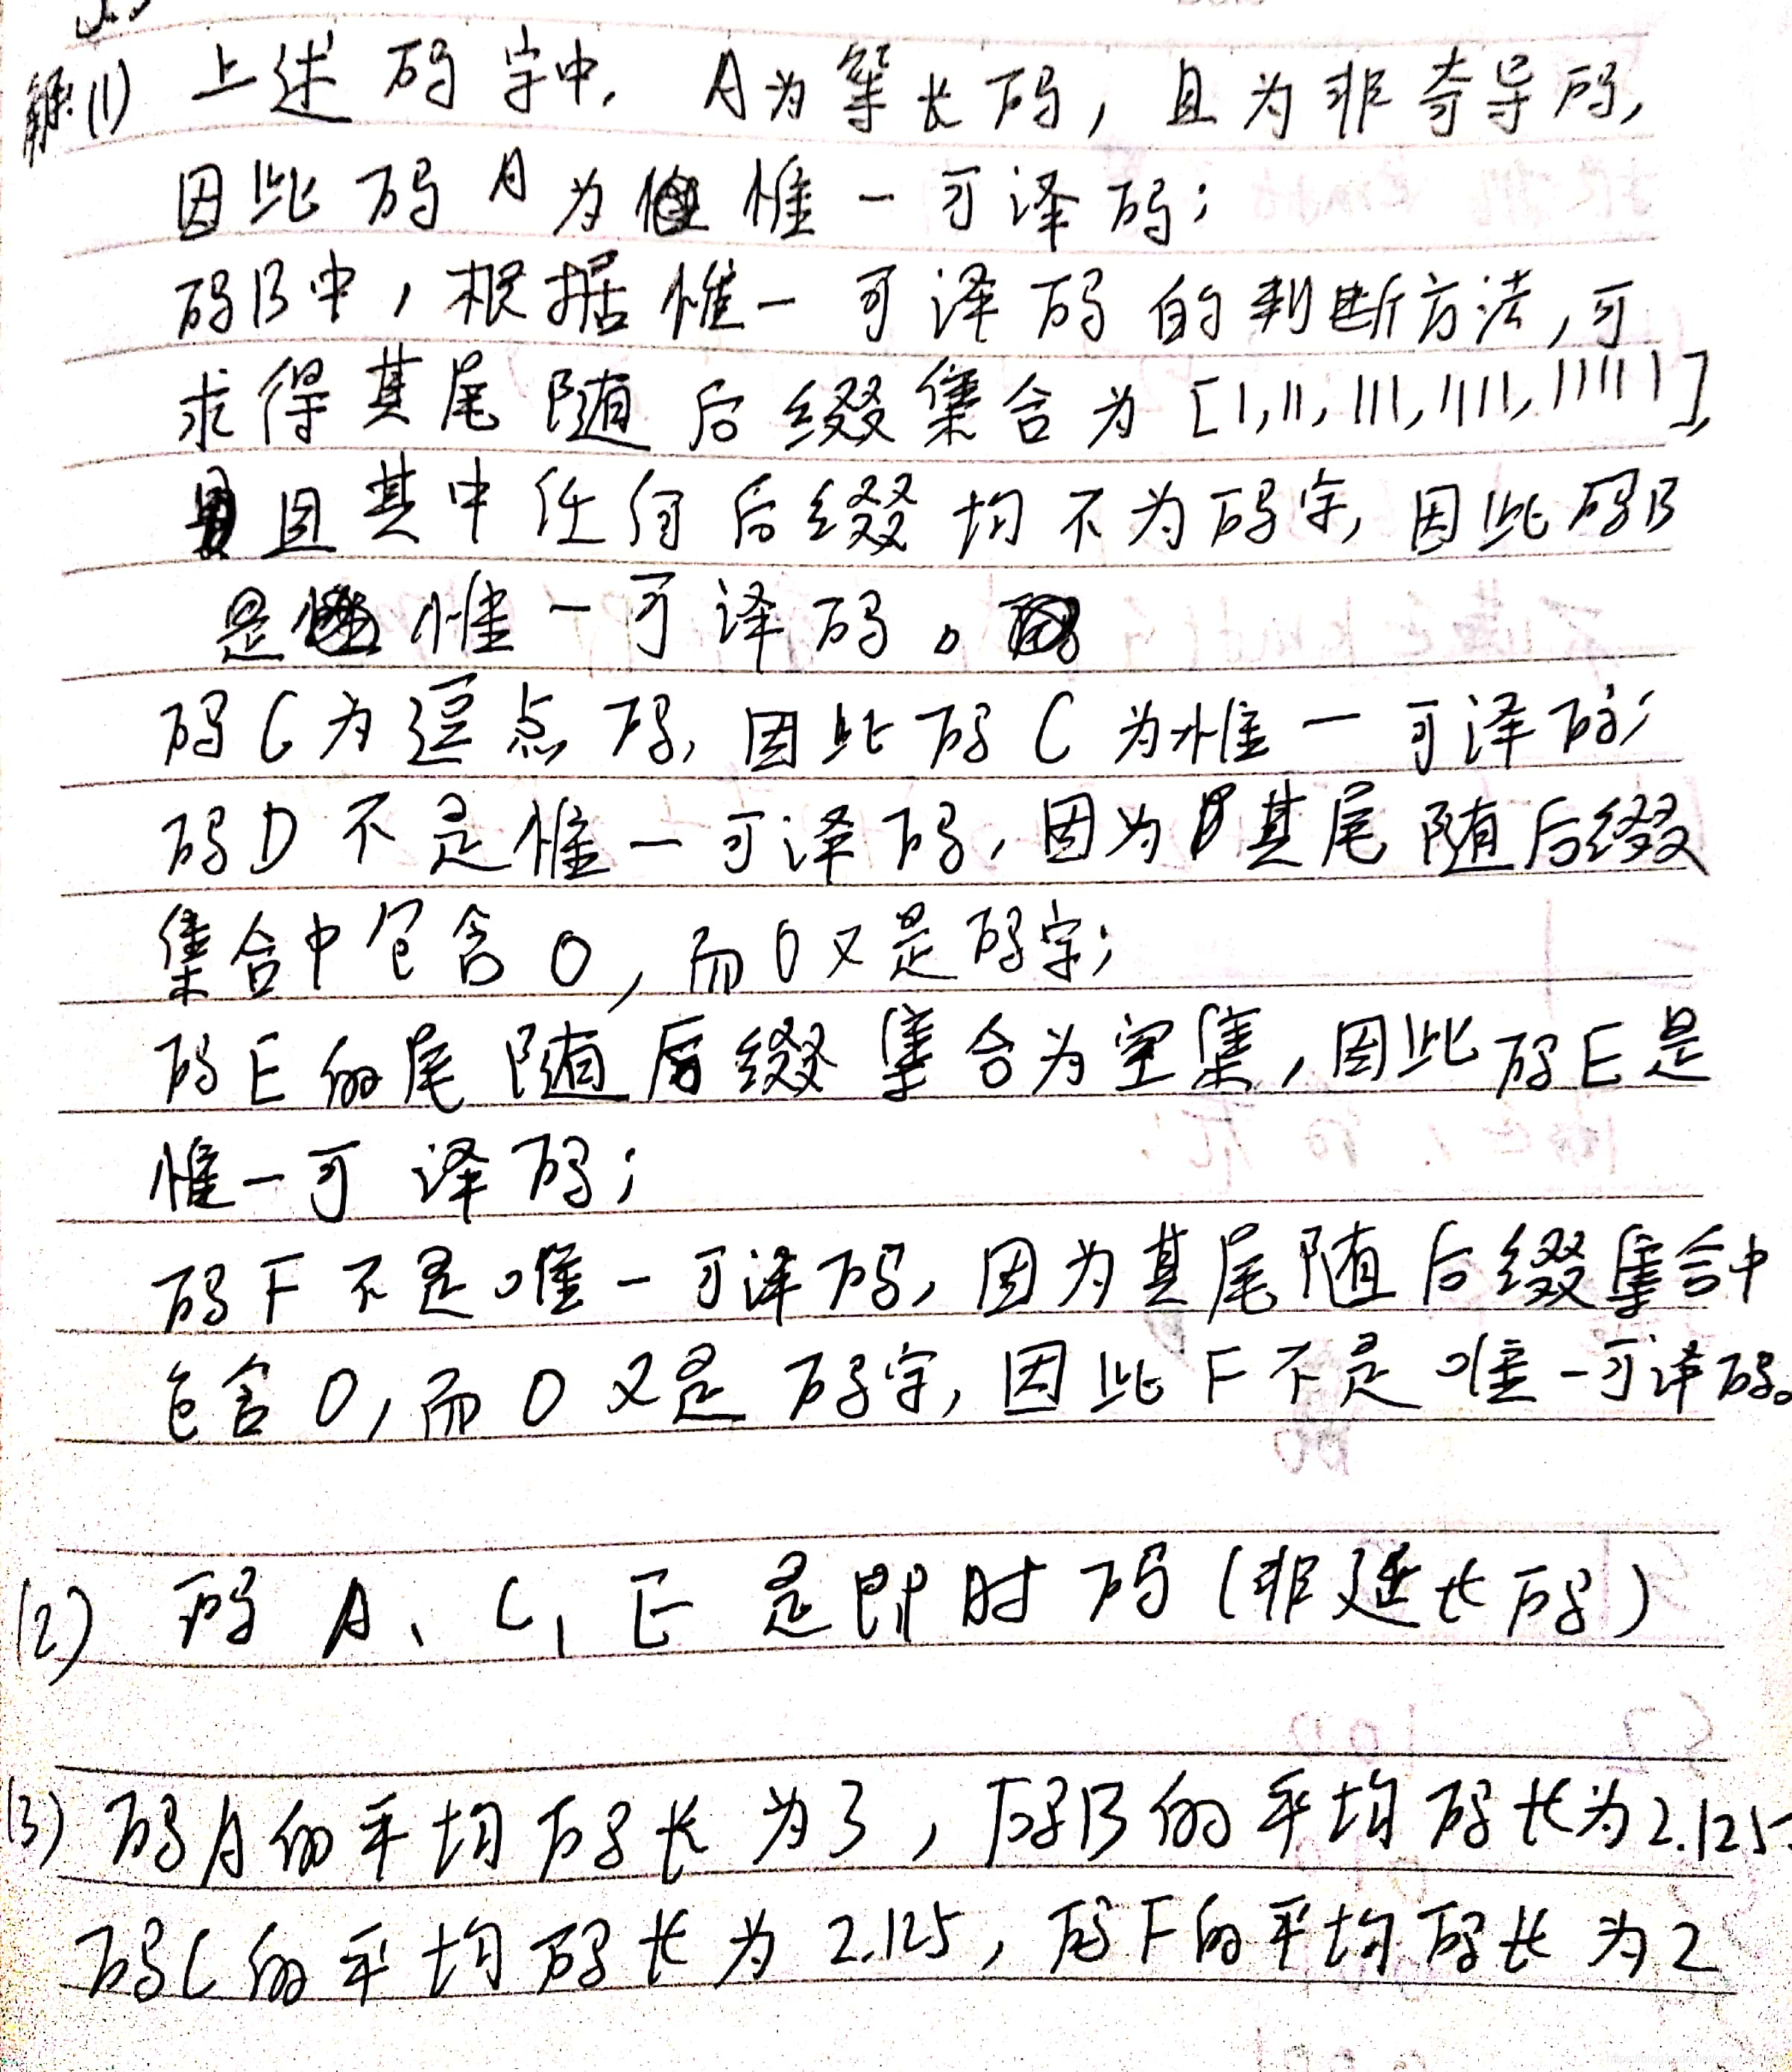 解:(1) 上述码字中, A为等长码, 且为非奇异码,
因此码A为惟一可译码;
码B中, 根据惟一可译码的判断方法, 可
求得其尾随后缀集合为[1,11,111,1111,11111],
且其中任何后缀均不为码字, 因此码B
是惟一可译码。
码C为逗点码, 因此码C为惟一可译码;
码D不是惟一可译码, 因为其尾随后缀
集合中包含0, 而0又是码字;
码E的尾随后缀集合为空集, 因此码E是
惟一可译码;
码F不是唯一可译码, 因为其尾随后缀集合中
包含0, 而0又是码字, 因此F不是唯一可译码。
(2) 码A、C、E是即时码(非延长码)
(3) 码A的平均码长为3, 码B的平均码长为2.125
码C的平均码长为2.125, 码F的平均码长为2